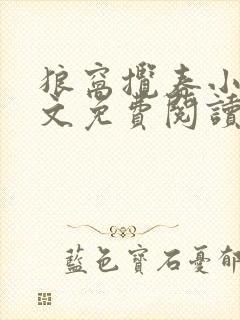 狼窩攬春小
文免費閱讀
藍色寶石憂郁